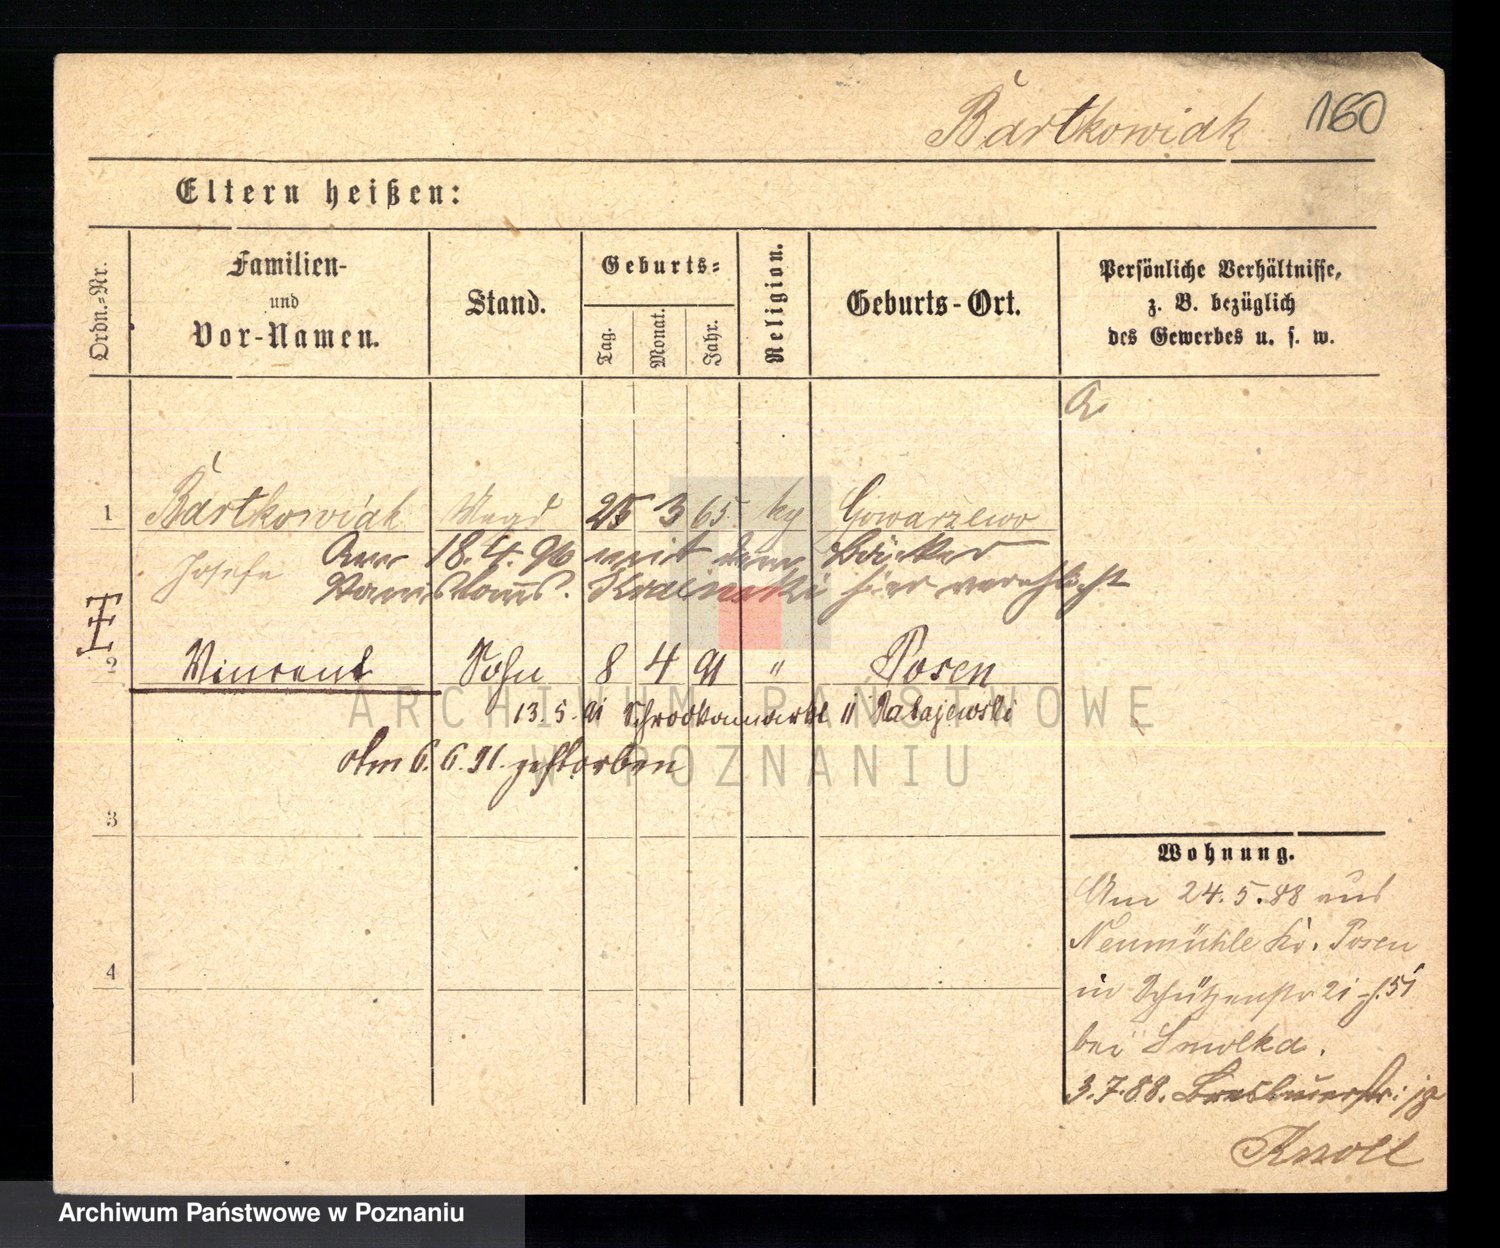 Bartkowiak 160
Eltern heißen:
Ordn.=Nr.
Familien-
und
Vor-Namen.
Stand.
Geburts=
Tag.
Monat.
Jahr.
Religion.
Geburts-Ort.
Persönliche Verhältnisse,
z. B. bezüglich
des Gewerbes u. s. w.
1 Bartkowiak Magd 25 3 65. kg Gowarzewo
Josefa Am 18.4.90 mit dem Bäcker
Stanislaus. Krainski hier verehlicht
2 Vincent Sohn 8 4 91 " Posen
13.5.91 Schrodkamarkt 11 Ratajewski
Am 6.6.91. gestorben
3
4
Wohnung.
Am 24.5.88 aus
Neumühle Kr. Posen
in Schützenstr 21
bei Smolka.
3.7.88. Breslauerstr:
Knoll
ARCHIWUM PAŃSTWOWE
W POZNANIU
Archiwum Państwowe w Poznaniu